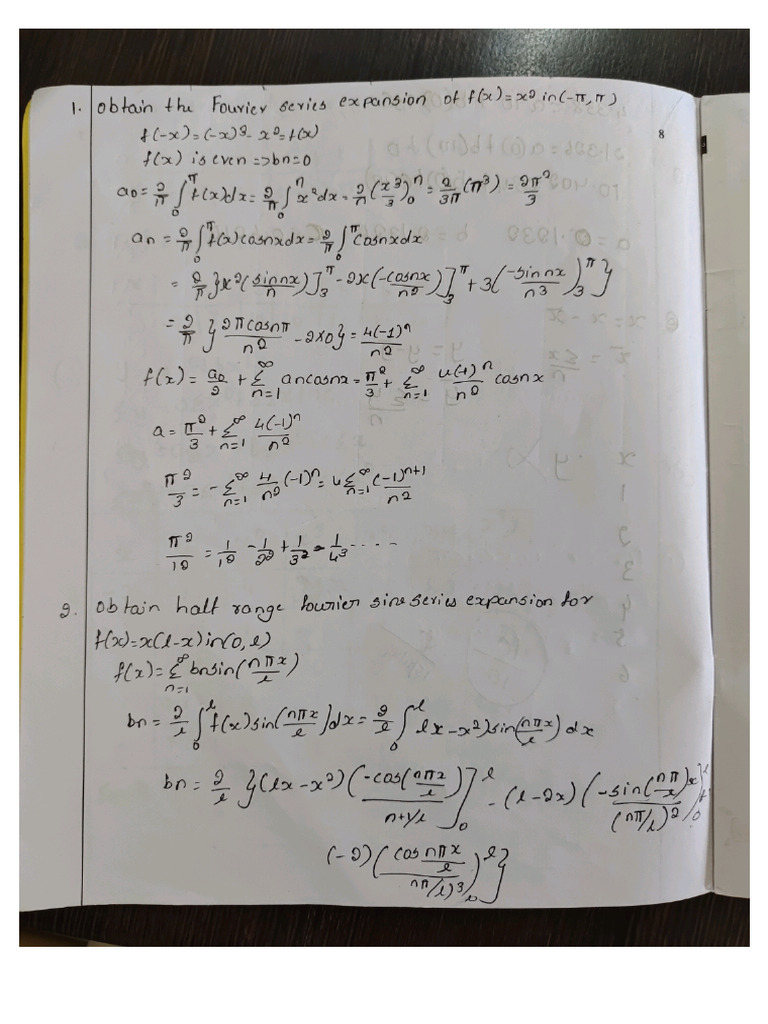 8
1. Obtain the Fourier series expansion of f(x)=x² in(-π, π)
f(-x)=(-x)²- x²=f(x)
f(x) is even =>bn=0
a₀= 2/π ∫₀^π f(x)dx= 2/π ∫₀^π x²dx= 2/π (x³/3)₀^π = 2/3π (π³) = 2π²/3
an= 2/π ∫₀^π f(x)cosnxdx= 2/π ∫₀^π cosnxdx
= 2/π {x²(sinnx/n)]₃^π -2x(-cosnx/n²)]₃^π +3(-sin nx/n³)₃^π}
= 2/π {2πcosnπ/n² -2x0}= 4(-1)ⁿ/n²
f(x)= a₀/2 + Σ_{n=1}^∞ ancosnx= π²/3 + Σ_{n=1}^∞ 4(-1)ⁿ/n² cosnx
a= π²/3 + Σ_{n=1}^∞ 4(-1)ⁿ/n²
π²/3 = -Σ_{n=1}^∞ 4/n² (-1)ⁿ= 4Σ_{n=1}^∞ (-1)ⁿ⁺¹/n²
π²/12 = 1/1² - 1/2² + 1/3² - 1/4³ ....
2. Obtain half range fourier sine series expansion for
f(x)=x(l-x)in(0, l)
f(x)= Σ_{n=1}^∞ bnsin(nπx/l)
bn= 2/l ∫₀^l f(x)sin(nπx/l)dx= 2/l ∫₀^l lx-x²)sin(nπx/l)dx
bn= 2/l {(lx-x²)(-cos(nπx/l)/n+1/l)]₀^l - (l-2x)(-sin(nπ/x)x/(nπ/l)²)₀^l +
(-2)(cos nπx/l / nπ/l)³)₀^l}